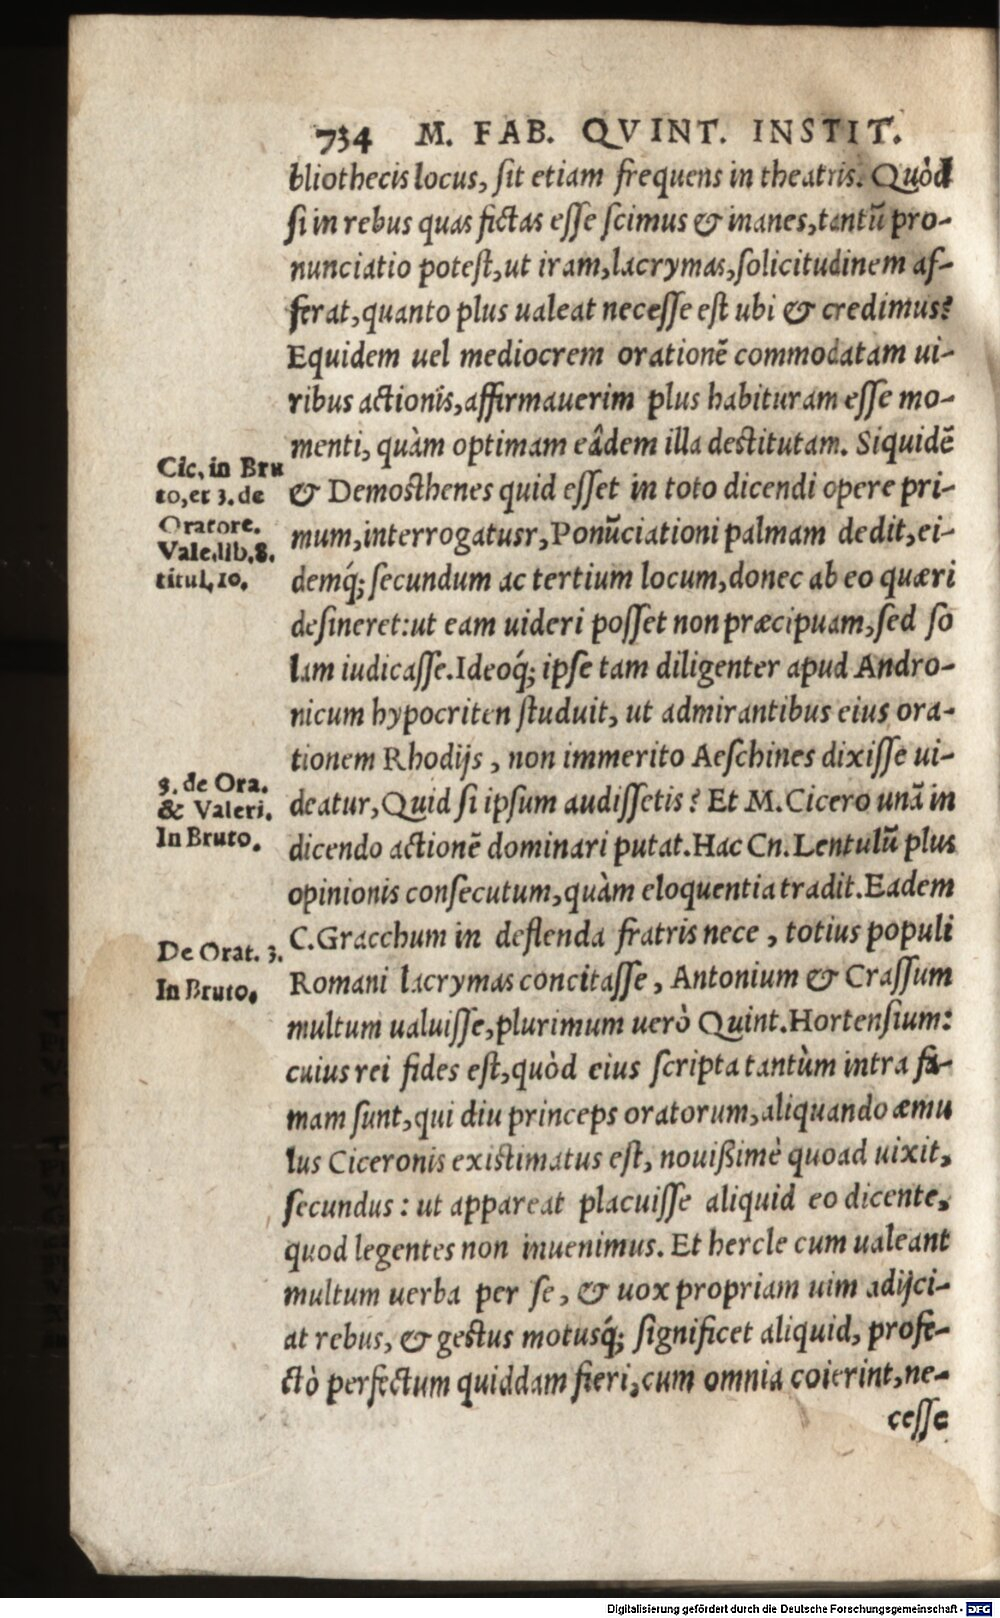 734 M. FAB. QVINT. INSTIT.
bliothecis locus, sit etiam frequens in theatris. Quòd
si in rebus quas fictas esse scimus & inanes, tantũ pro-
nunciatio potest, ut iram, lacrymas, solicitudinem af-
ferat, quanto plus ualeat necesse est ubi & credimus?
Equidem uel mediocrem orationẽ commodatam ui-
ribus actionis, affirmauerim plus habituram esse mo-
menti, quàm optimam eâdem illa destitutam. Siquidẽ
& Demosthenes quid esset in toto dicendi opere pri-
mum, interrogatusr, Ponũciationi palmam dedit, ei-
demq́; secundum ac tertium locum, donec ab eo quæri
desineret: ut eam uideri posset non præcipuam, sed so
lam iudicasse. Ideoq́; ipse tam diligenter apud Andro-
nicum hypocriten studuit, ut admirantibus eius ora-
tionem Rhodijs, non immerito Aeschines dixisse ui-
deatur, Quid si ipsum audissetis? Et M. Cicero unã in
dicendo actionẽ dominari putat. Hac Cn. Lentulũ plus
opinionis consecutum, quàm eloquentia tradit. Eadem
C. Gracchum in deflenda fratris nece, totius populi
Romani lacrymas concitasse, Antonium & Crassum
multum ualuisse, plurimum uerò Quint. Hortensium:
cuius rei fides est, quòd eius scripta tantùm intra fa-
mam sunt, qui diu princeps oratorum, aliquando æmu
lus Ciceronis existimatus est, nouißimè quoad uixit,
secundus: ut appareat placuisse aliquid eo dicente,
quod legentes non inuenimus. Et hercle cum ualeant
multum uerba per se, & uox propriam uim adijci-
at rebus, & gestus motusq́; significet aliquid, profe-
ctò perfectum quiddam fieri, cum omnia coierint, ne-
cesse
Cic. in Bru
to, et 3. de
Oratore.
Vale. lib. 8.
titul. 10.
3. de Ora.
& Valeri.
In Bruto.
De Orat. 3.
In Bruto.
Digitalisierung gefördert durch die Deutsche Forschungsgemeinschaft - DFG